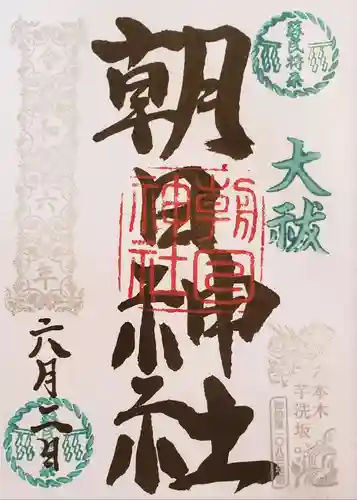 蘇民将来
大祓
朝日神社
朝日
神社
令和六年
六月二日
六本木
芋洗坂